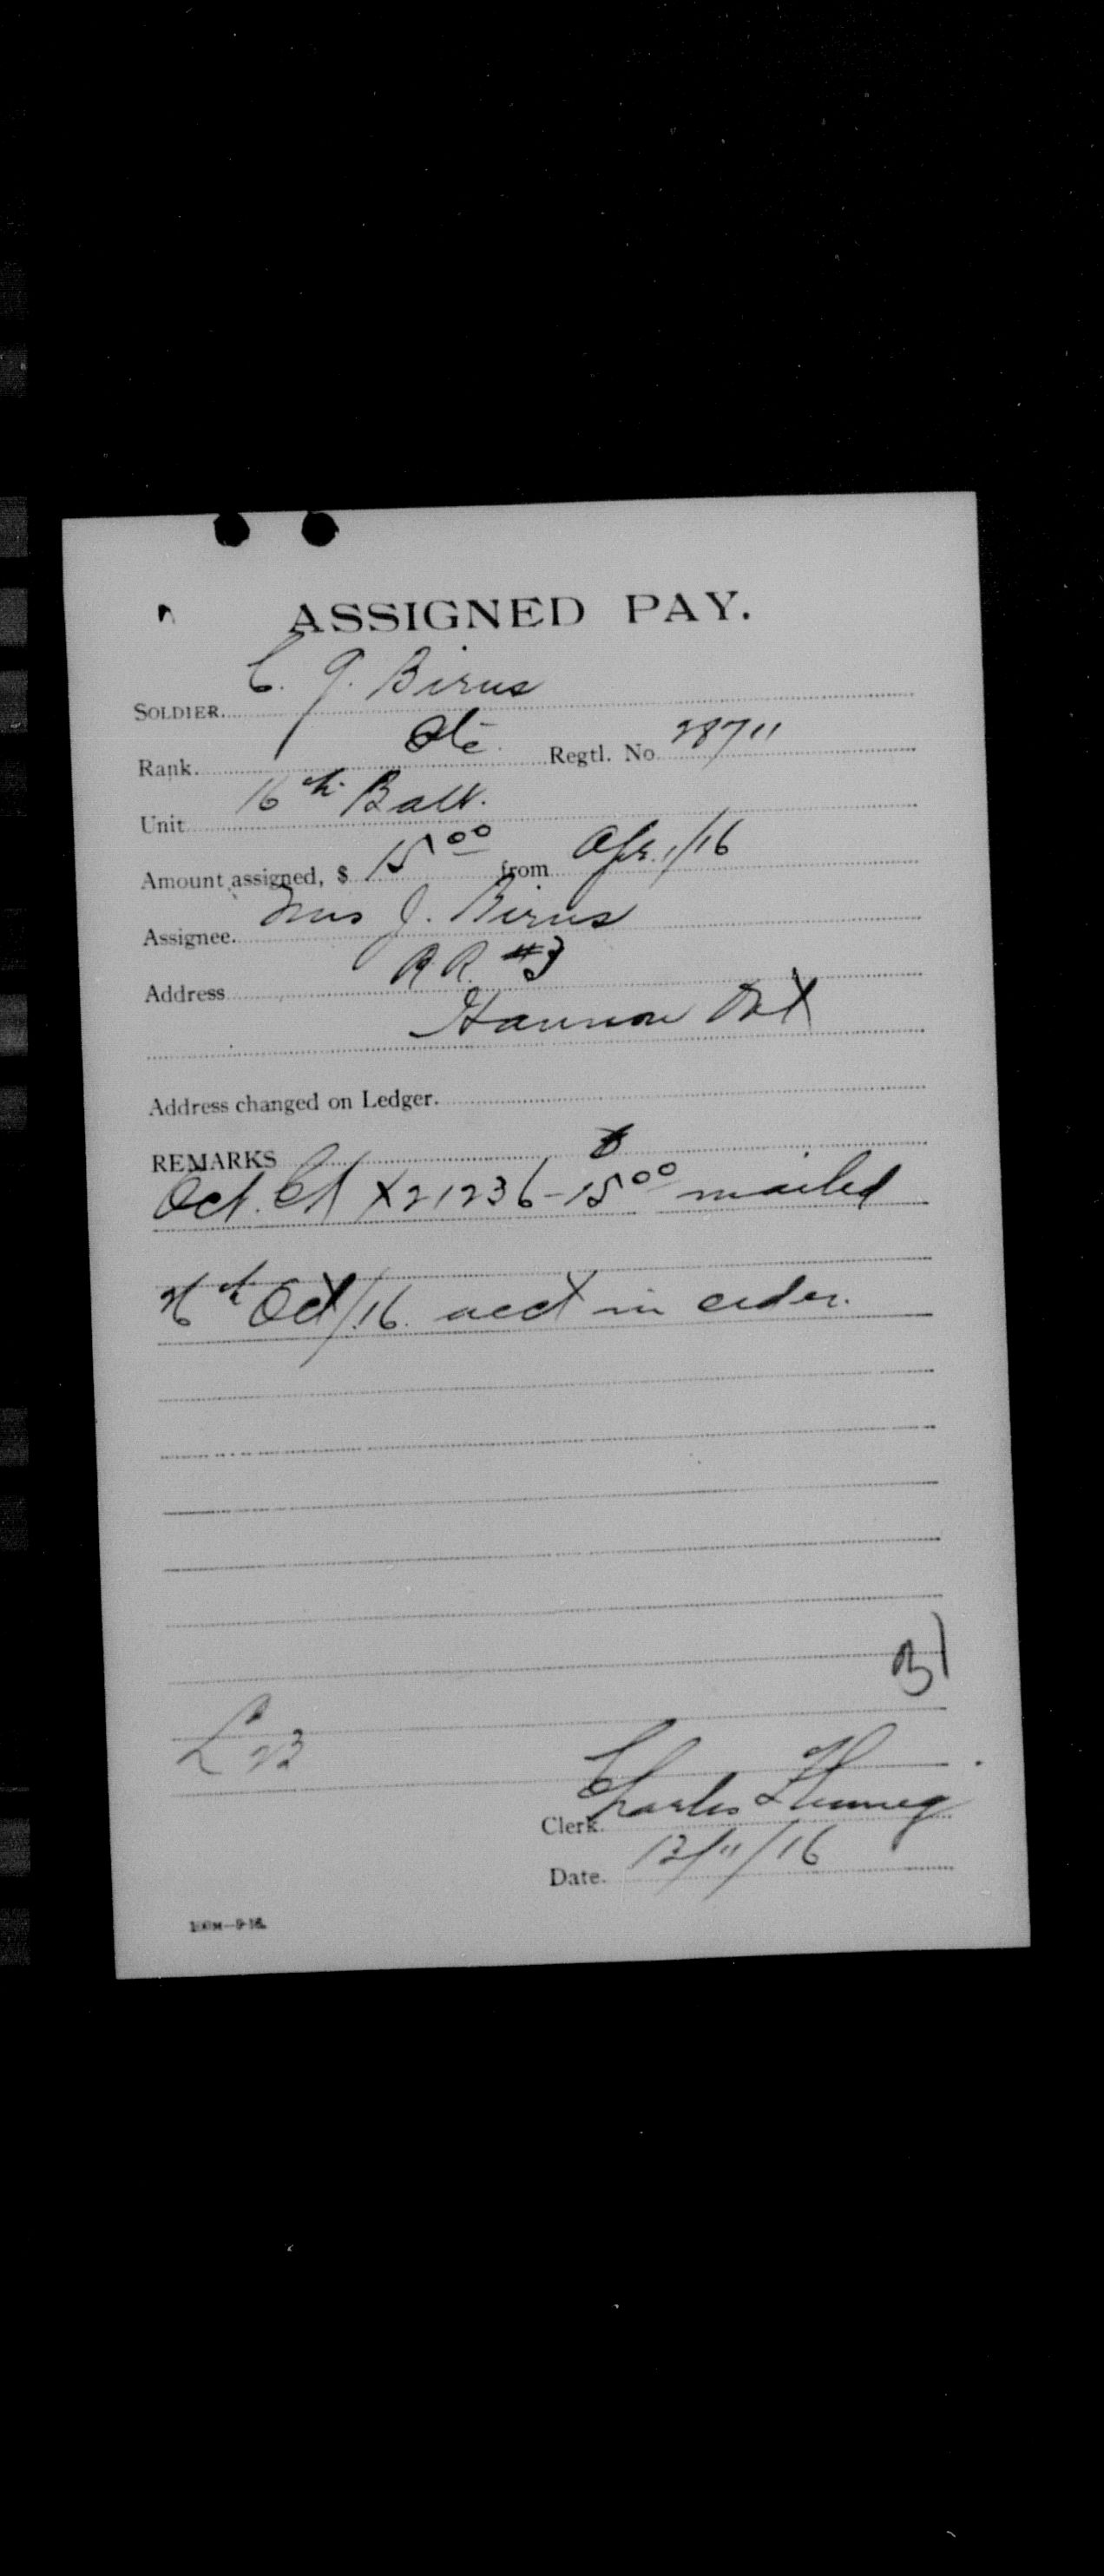 ASSIGNED PAY.
SOLDIER. C. J. Birus
Rank. Pte Regtl. No. 28711
Unit 16th Batt.
Amount assigned, $ 15 00 from Apr. 1/16
Assignee. Mrs J. Birus
Address R.R. #3
Hannon Ont
Address changed on Ledger.
REMARKS
Oct. Ch X21236-15 00 mailed
26th Oct/16. acct in order.
L 23
Clerk. Charles
Date. 13/11/16